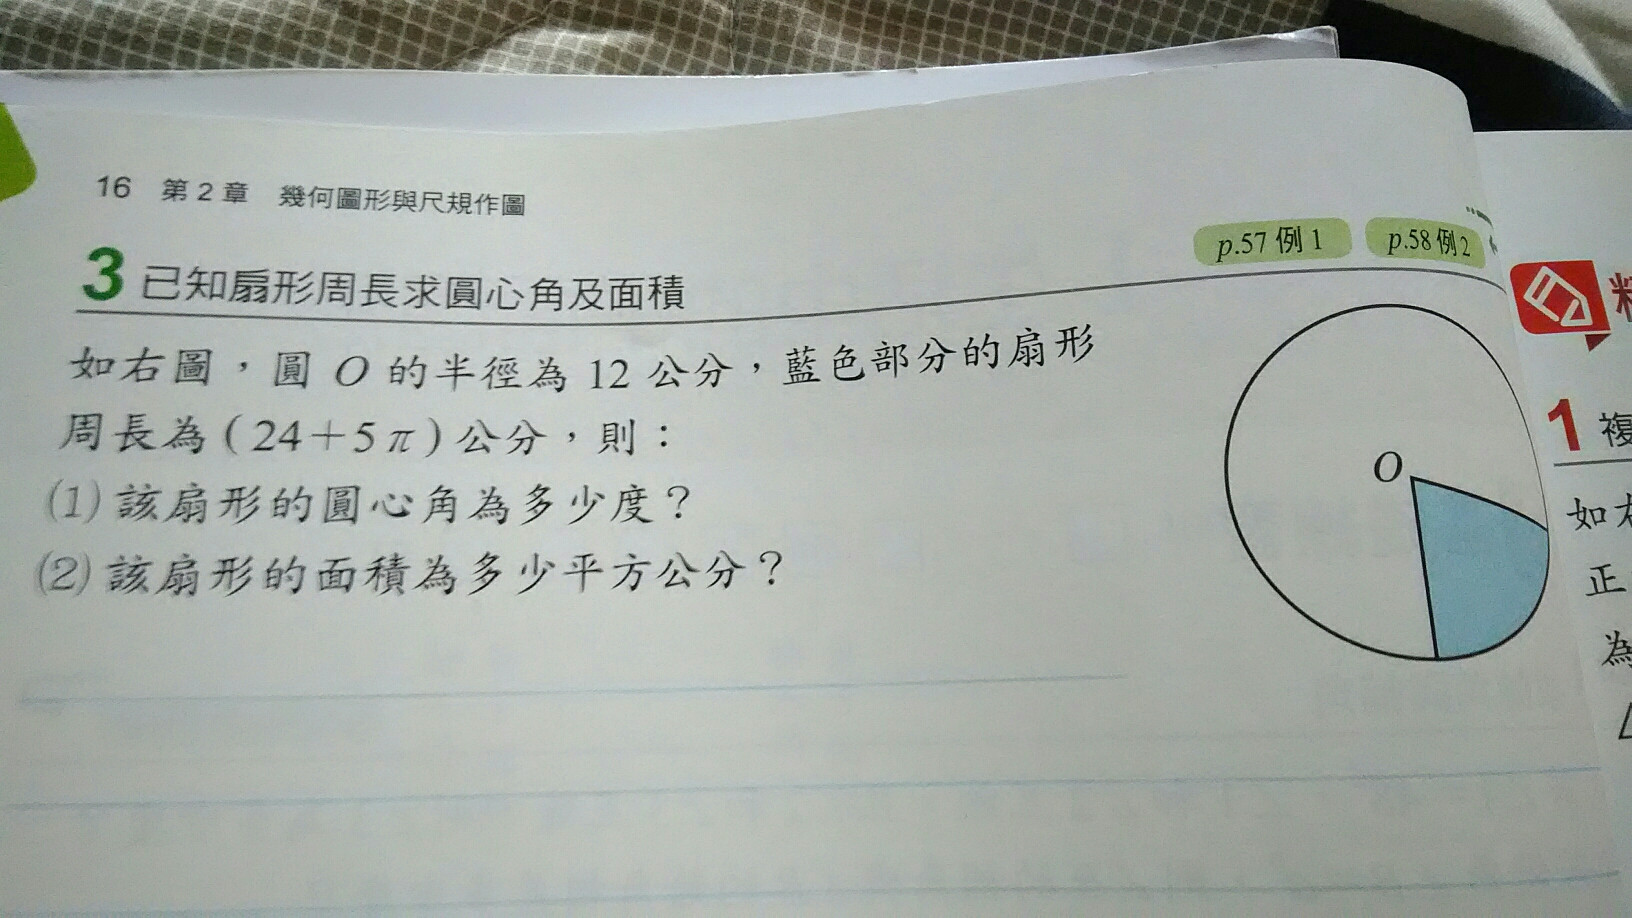 16 第2章 幾何圖形與尺規作圖
p.57 例1 p.58 例2
3 已知扇形周長求圓心角及面積
如右圖,圓 O 的半徑為 12 公分,藍色部分的扇形
周長為(24+5π)公分,則:
(1) 該扇形的圓心角為多少度?
(2) 該扇形的面積為多少平方公分?
O
1 複
如右
正
為